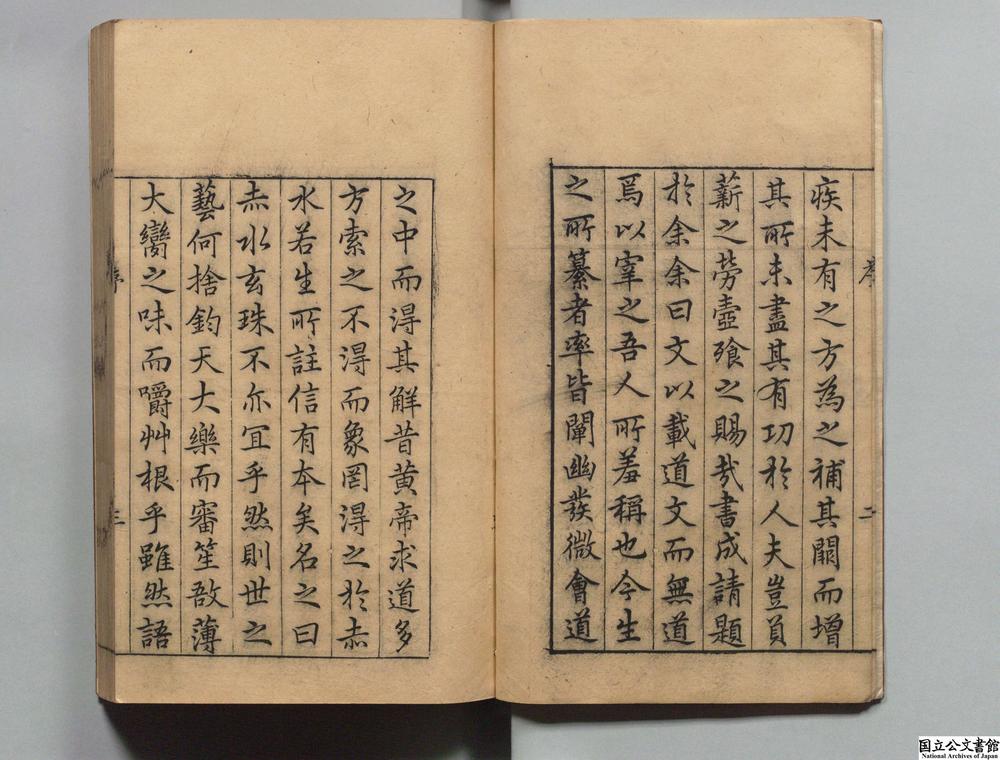 序
二
疾未有之方為之補其闕而增
其所未盡其有功於人夫豈負
薪之勞壺飱之賜㢤書成請題
於余余曰文以載道文而無道
焉以宰之吾人所羞稱也今生
之所纂者率皆闡幽發微會道
之中而淂其解昔黃帝求道多
方索之不淂而象罔淂之於赤
水若生所註信有本矣名之曰
赤水玄珠不亦冝乎然則世之
藝何捨鈞天大樂而審笙敔薄
大臠之味而嚼艸根乎雖然語
序
三
国立公文書館
National Archives of Japan